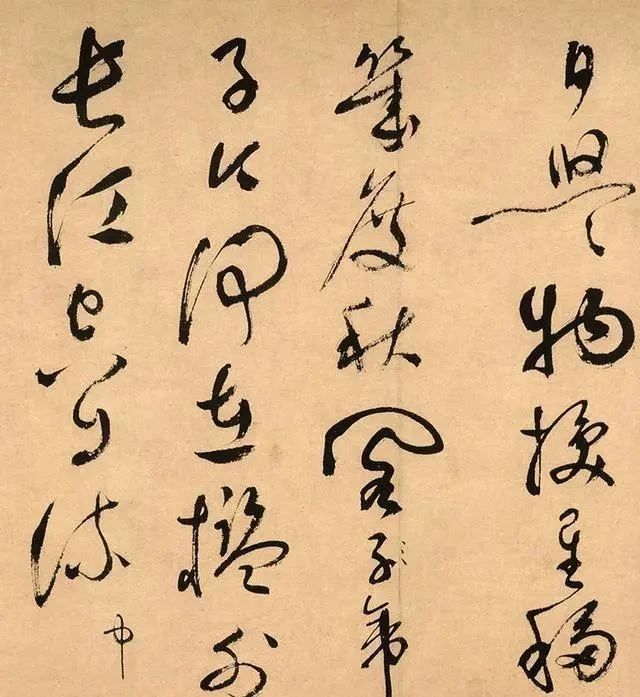 日悠々物換星移
幾度秋閣子帝
子今何在檻外
長江空自流中